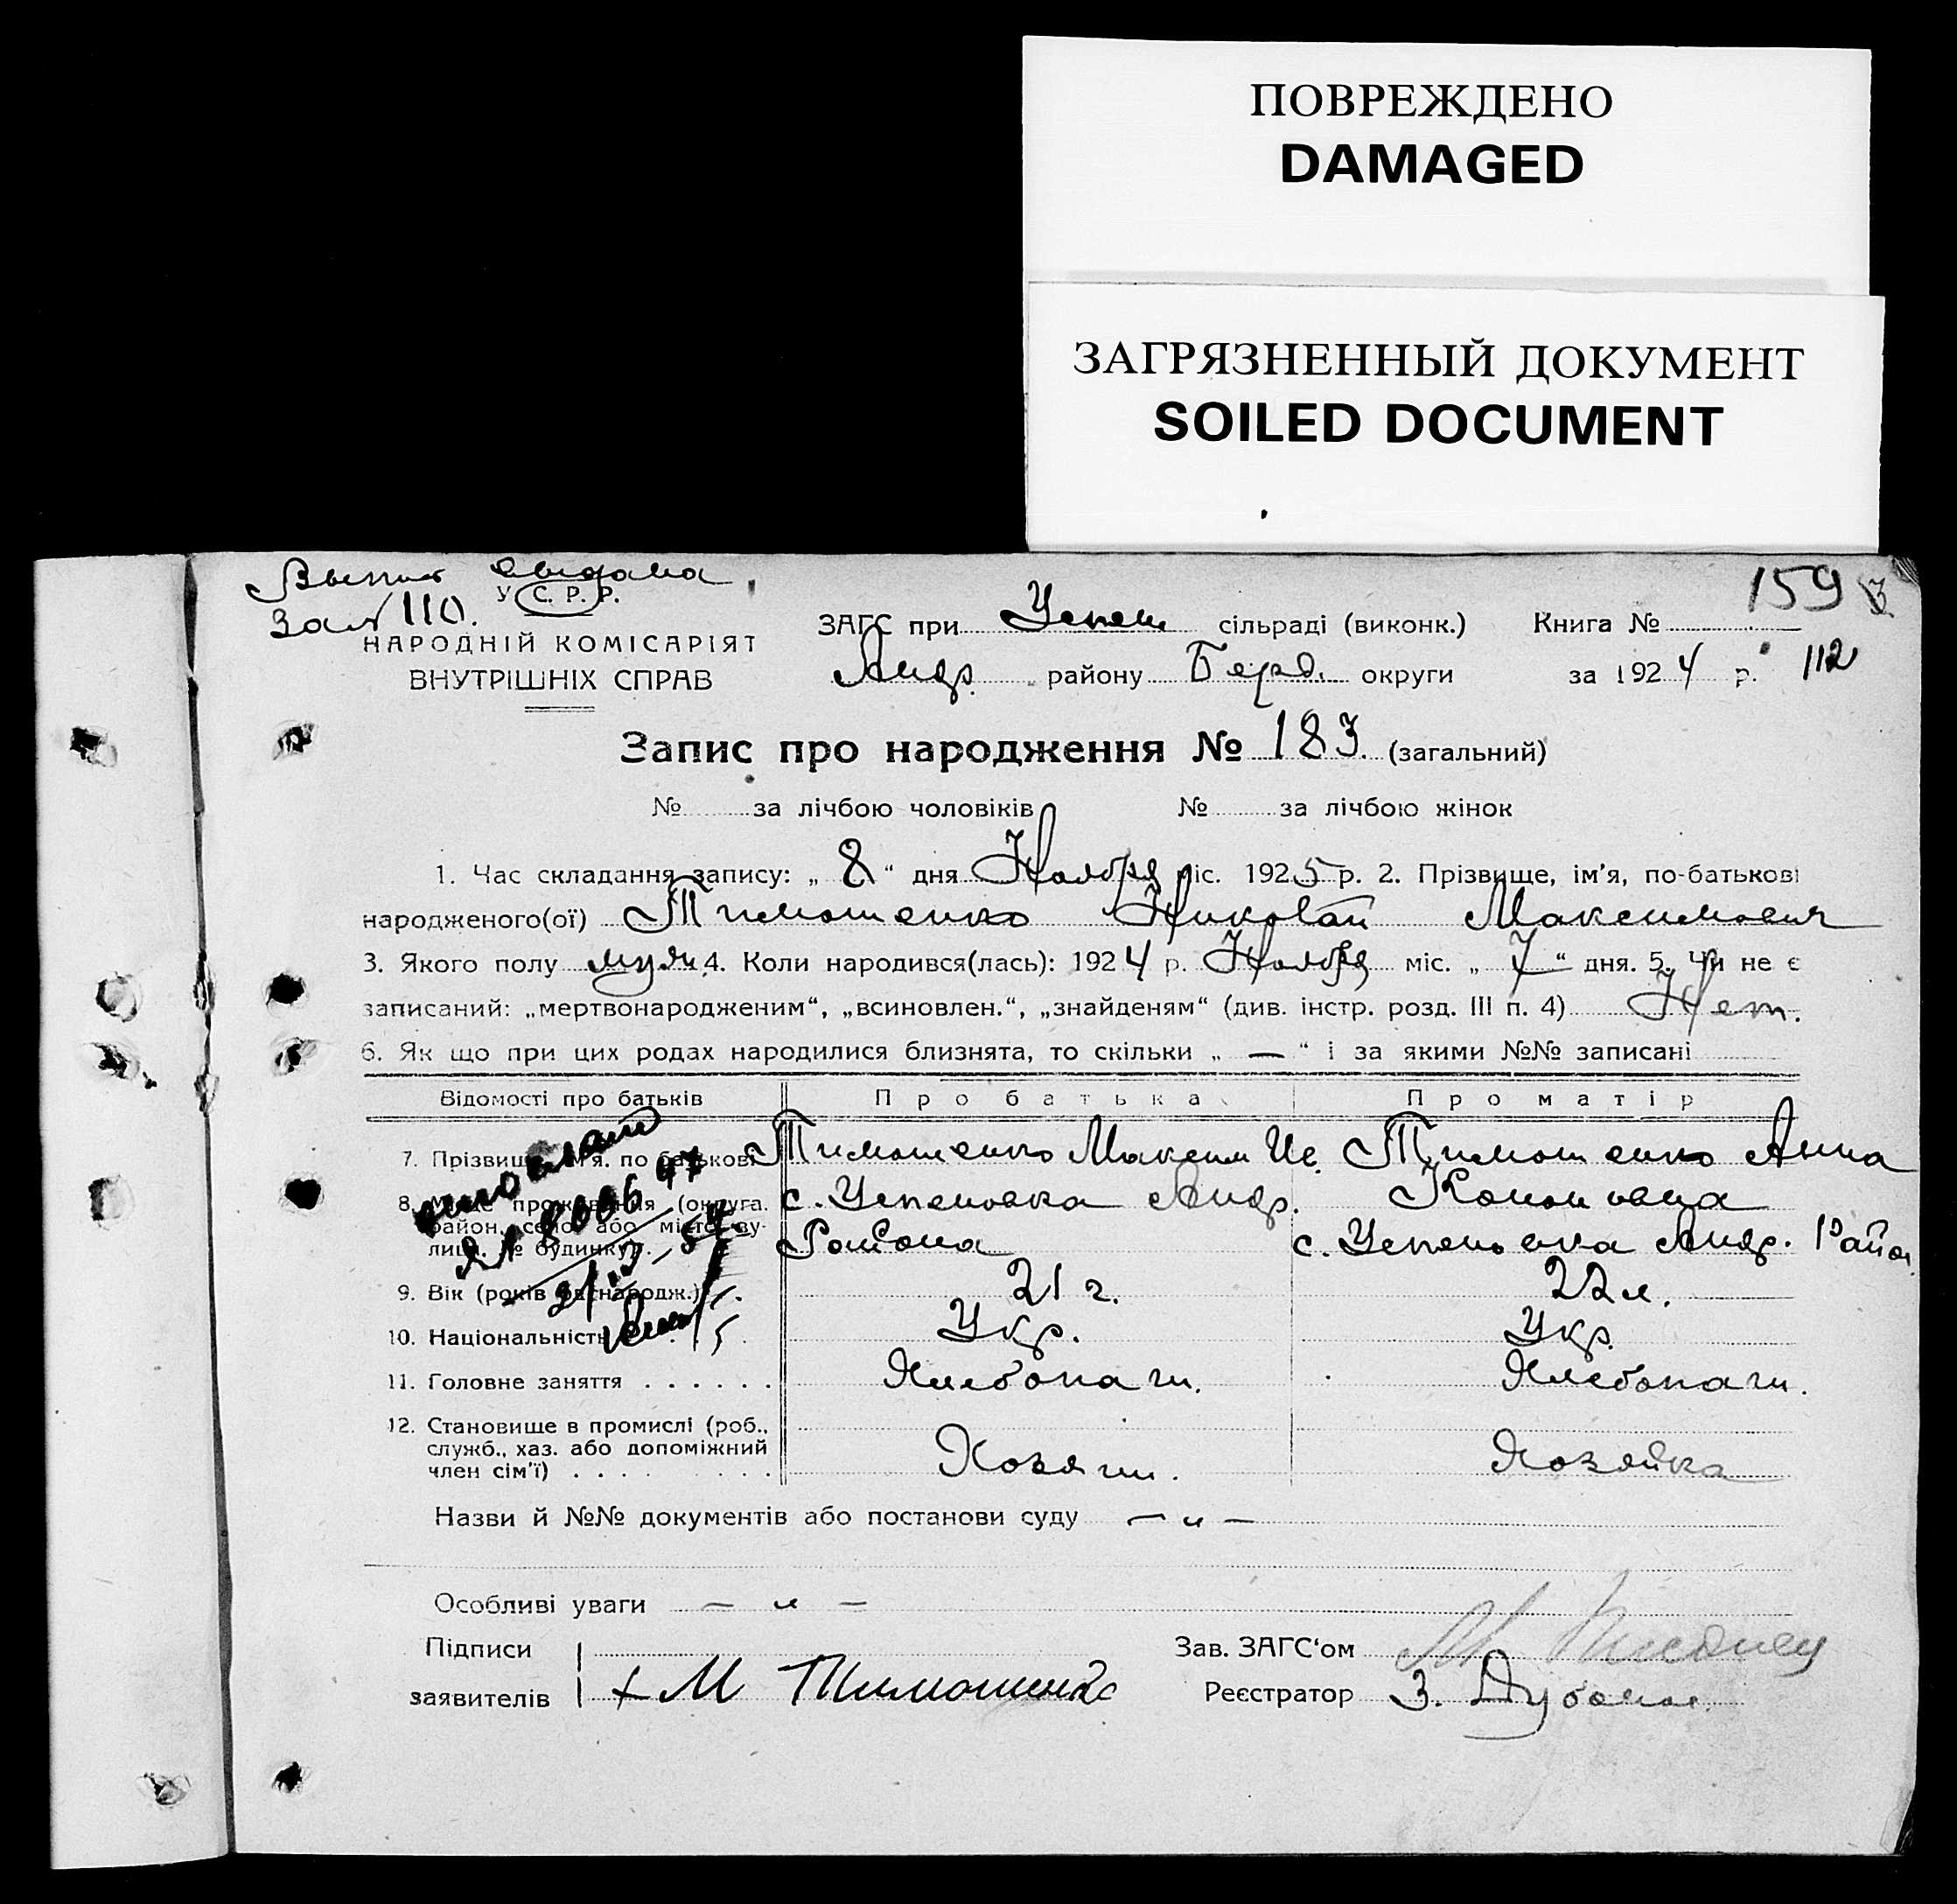 ПОВРЕЖДЕНО
DAMAGED
ЗАГРЯЗНЕННЫЙ ДОКУМЕНТ
SOILED DOCUMENT
159
110.
У С. Р. Р.
НАРОДНІЙ КОМІСАРІЯТ
ВНУТРІШНІХ СПРАВ
ЗАГС при Успен сільраді (виконк.) Книга №
Андр. району Берд. округи за 1924 р. 112
Запис про народження № 183. (загальний)
№ за лічбою чоловіків № за лічбою жінок
1. Час складання запису: „ 8 “ дня Ноября міс. 1925 р. 2. Прізвище, ім'я, по-батькові
народженого(ої) Тимошенко Николай Максимович
3. Якого полу муж. 4. Коли народився(лась): 1924 р. Ноября міс. „ 7 “ дня. 5. Чи не є
записаний: „мертвонародженим“, „всиновлен.“, „знайденям“ (див. інстр. розд. III п. 4) Нет.
6. Як що при цих родах народилися близнята, то скільки „ — “ і за якими №№ записані
Відомості про батьків Про батька Про матір
7. Прізвище, ім'я, по батькові Тимошенко Максим Ис. Тимошенко Анна
8. Місце проживання (округа, с. Успеновка Андр. Кононовна
район, село або місто, ву-
лиця, № будинку). Района с. Успеновка Андр. Район
9. Вік (років від народж.) 21 г. 22 л.
10. Національність Укр. Укр.
11. Головне заняття . . . . . . Хлебопаш. Хлебопаш.
12. Становище в промислі (роб.,
служб., хаз. або допоміжний
член сім'ї) . . . . Хозяин. Хозяйка
Назви й №№ документів або постанови суду — „ —
Особливі уваги — „ —
Підписи Зав. ЗАГС'ом
заявителів + М Тимошенко Реєстратор З.